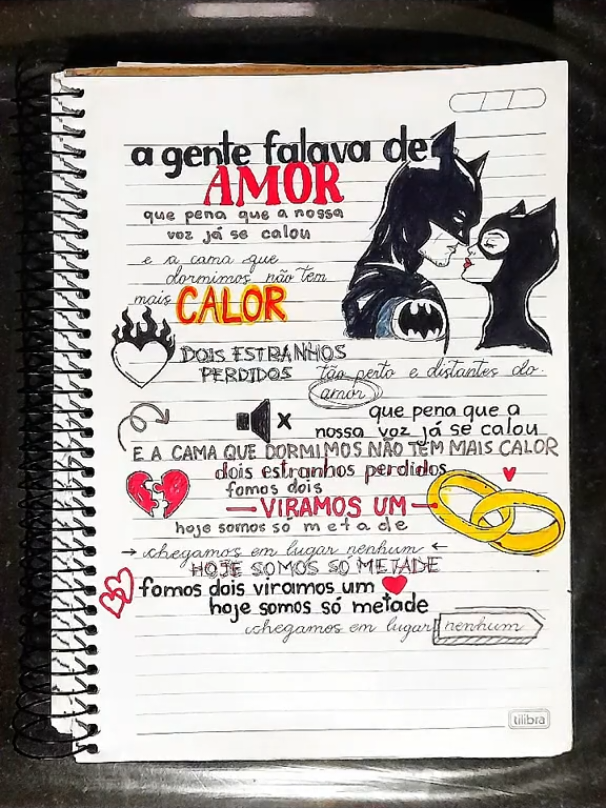 a gente falava de
AMOR
que pena que a nossa
voz já se calou
e a cama que
dormimos não tem
mais CALOR
DOIS ESTRANHOS
PERDIDOS tão perto e distantes do
amor
que pena que a
nossa voz já se calou
E A CAMA QUE DORMIMOS NÃO TEM MAIS CALOR
dois estranhos perdidos
fomos dois
VIRAMOS UM
hoje somos só metade
chegamos em lugar nenhum
HOJE SOMOS SÓ METADE
fomos dois viramos um
hoje somos só metade
chegamos em lugar nenhum
tilibra